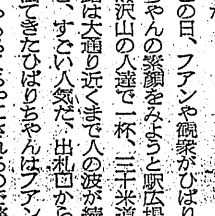 の日、フアンや観衆がひばり
ちゃんの素顔をみようと駅広場
沢山の人達で一杯、三十米道
路は大通り近くまで人の波が続
、すごい人気だ、出札口から
てきたひばりちゃんはフアン